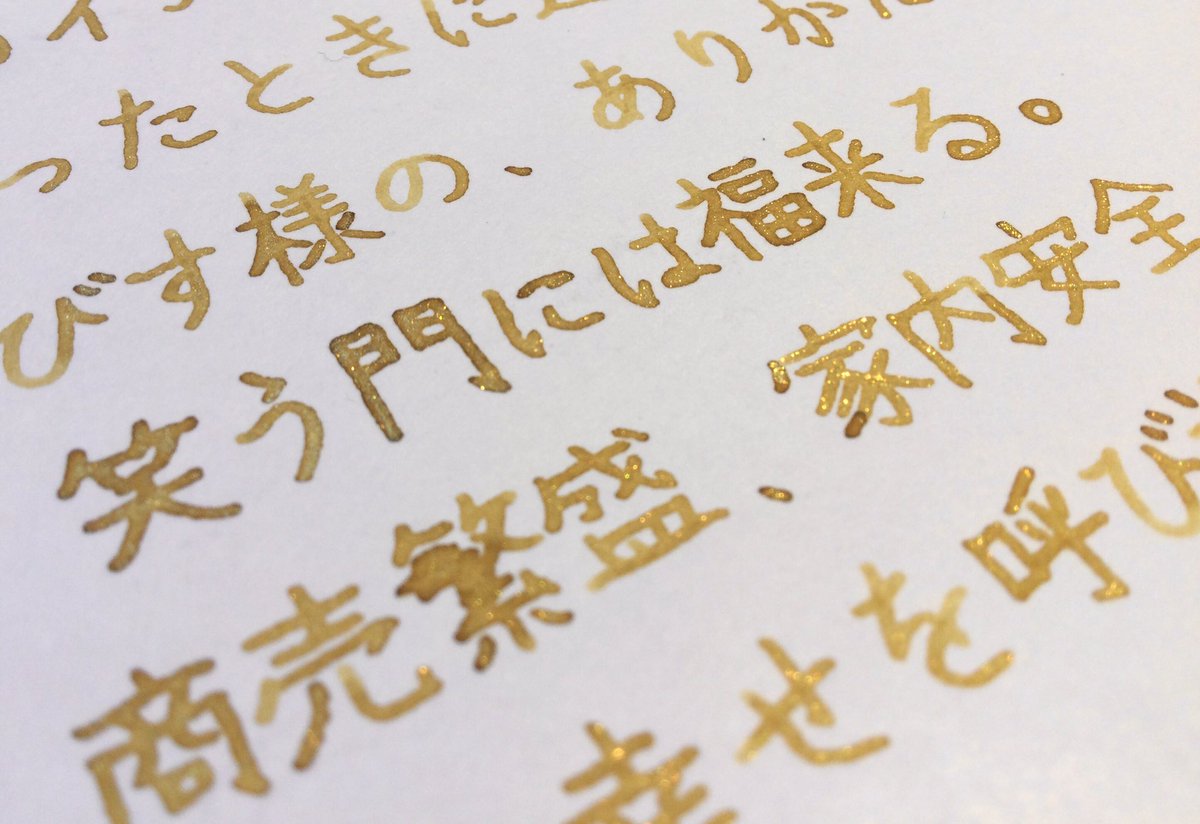 ったときに
びす様の、ありが
笑う門には福来る。
商売繁盛、家内安全
幸せを呼び